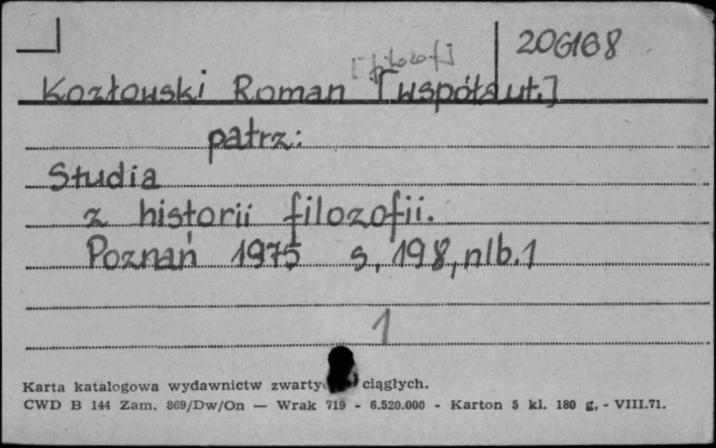 206168
[filozof]
Kozłowski Roman [współaut.]
patrz:
Studia
z historii filozofii.
Poznań 1975 s. 198, nlb. 1
1
Karta katalogowa wydawnictw ciągłych.
CWD B 144 Zam. 869/Dw/On — Wrak 719 - 6.520.000 - Karton 5 kl. 180 g. - VIII.71.